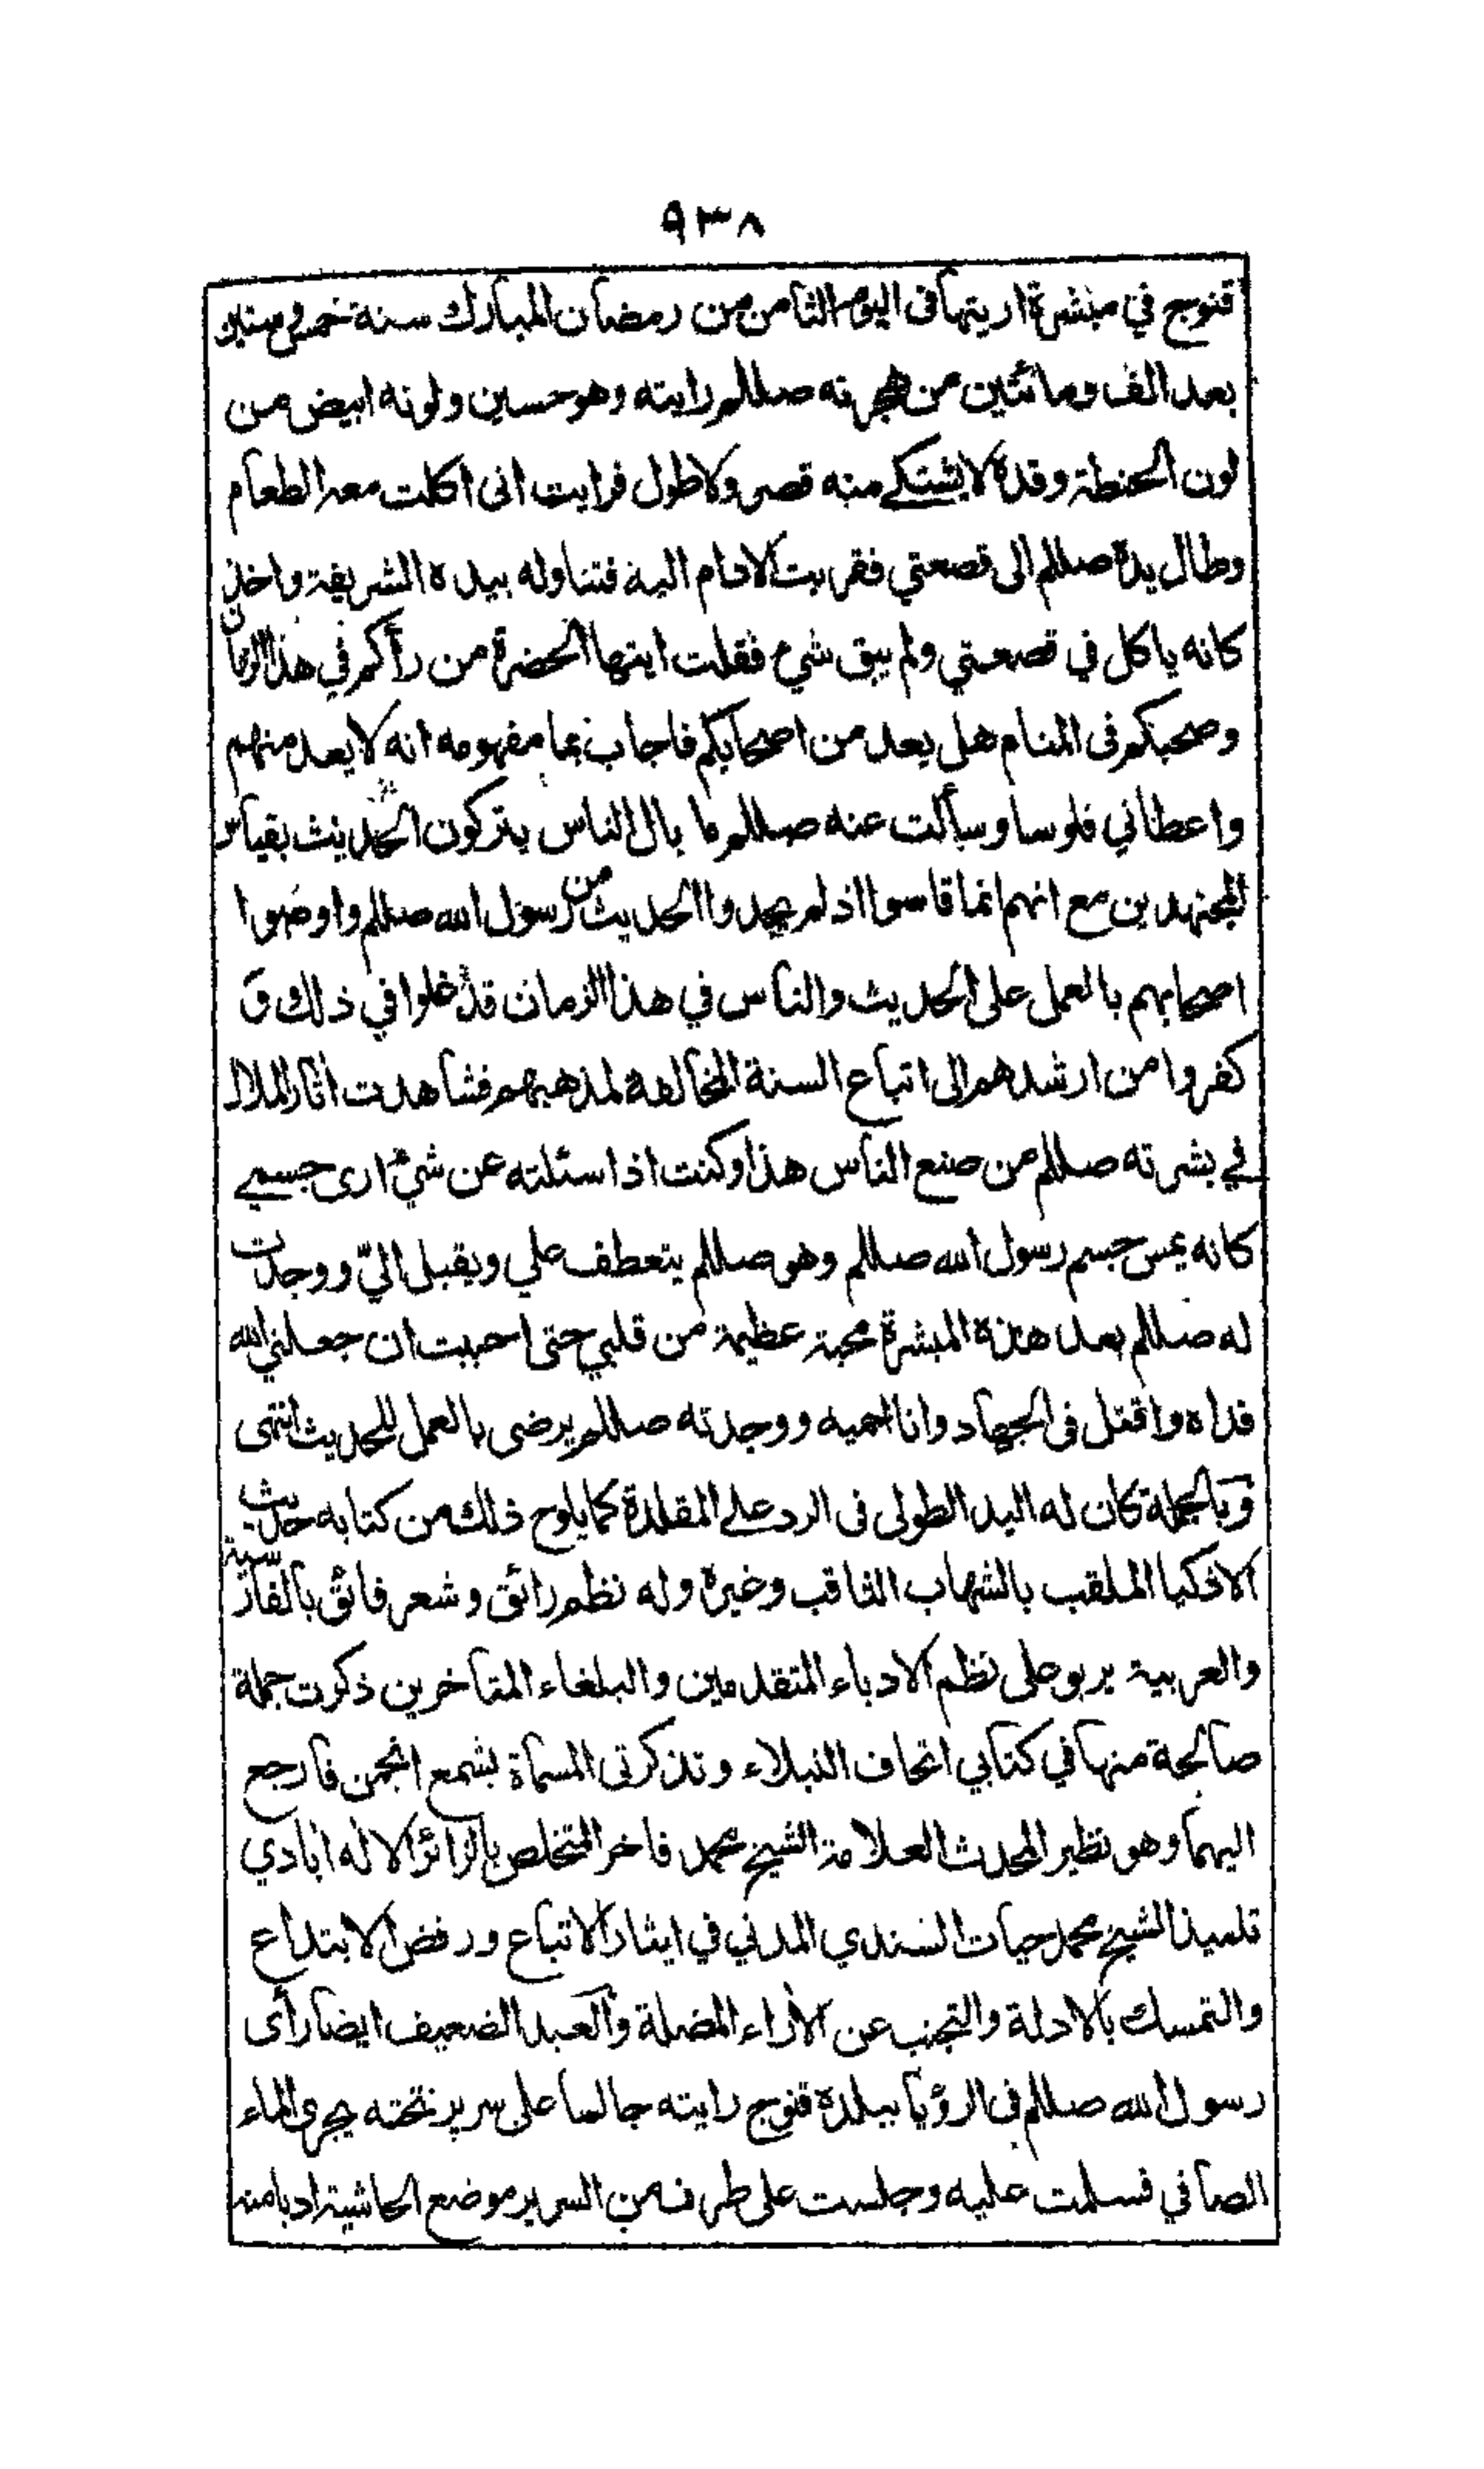 ٩٣٨
قنوج في مبشرة اريتها فى اليوم الثامن من رمضان المبارك سنة خمس وستين
بعد الف ومائتين من هجرته صللم رايته وهو حسين ولونه ابيض من
لون الحنطة وقده لا يشتكے منه قصر ولا طول فرايت انى اكلت معه الطعام
وطال يده صللم الى قصعتي فقربت الادام اليه فتناوله بيده الشريفة واخذ
كانه ياكل في قصعتي ولم يبق شئ فقلت ايتها الحضرة من رأكم في هذا الزمان
وصحبكم فى المنام هل يعد من اصحابكم فاجاب بما مفهومه انه لا يعد منهم
واعطاني فلوسا وسألت عنه صللم ما بال الناس يتركون الحديث بقياس
المجتهدين مع انهم انما قاسوا اذ لم يجدوا الحديث من رسول الله صللم واوصوا
اصحابهم بالعمل على الحديث والناس في هذا الزمان قد غلوا في ذلك و
كفروا من ارشدهم الى اتباع السنة المخالفة لمذهبهم فشاهدت اثار الملال
في بشرته صللم من صنع الناس هذا وكنت اذا سئلته عن شئ ارى جسمے
كانه يمس جسم رسول الله صللم وهو صللم يتعطف علي ويقبل اليّ ووجدت
له صللم بعد هذه المبشرة محبة عظيمة من قلبي حتى احببت ان جعلني الله
فداه واقتل فى الجهاد وانا احميه ووجدته صللم يرضى بالعمل للحديث انتهى
وبالجملة كان له اليد الطولى فى الرد علے المقلدة كما يلوح ذلك من كتابه حديث
الاذكيا الملقب بالشهاب الثاقب وغيره وله نظم رائق وشعر فائق بالفارسية
والعربية يربو على نظم الادباء المتقدمين والبلغاء المتاخرين ذكرت جملة
صالحة منها في كتابي اتحاف النبلاء وتذكرتى المسماة بشمع انجمن فارجع
اليهما وهو نظير المحدث العلامة الشيخ محمد فاخر المتخلص بالزائر الاله ابادي
تلميذ الشيخ محمد حيات السندي المدني في ايثار الاتباع ورفض الابتداع
والتمسك بالادلة والتجنب عن الأراء المضلة والعبد الضعيف ايضا رأى
رسول الله صللم فى الرؤيا ببلدة قنوج رايته جالسا على سرير تحته يجرى الماء
الصافي فسلمت عليه وجلست على طرف من السرير موضع الحاشية ادبا منه